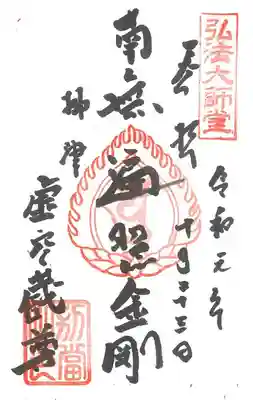 弘法大師堂
奉拝
令和元年
十月二十三日
南無遍照金剛
虚空蔵尊
別當